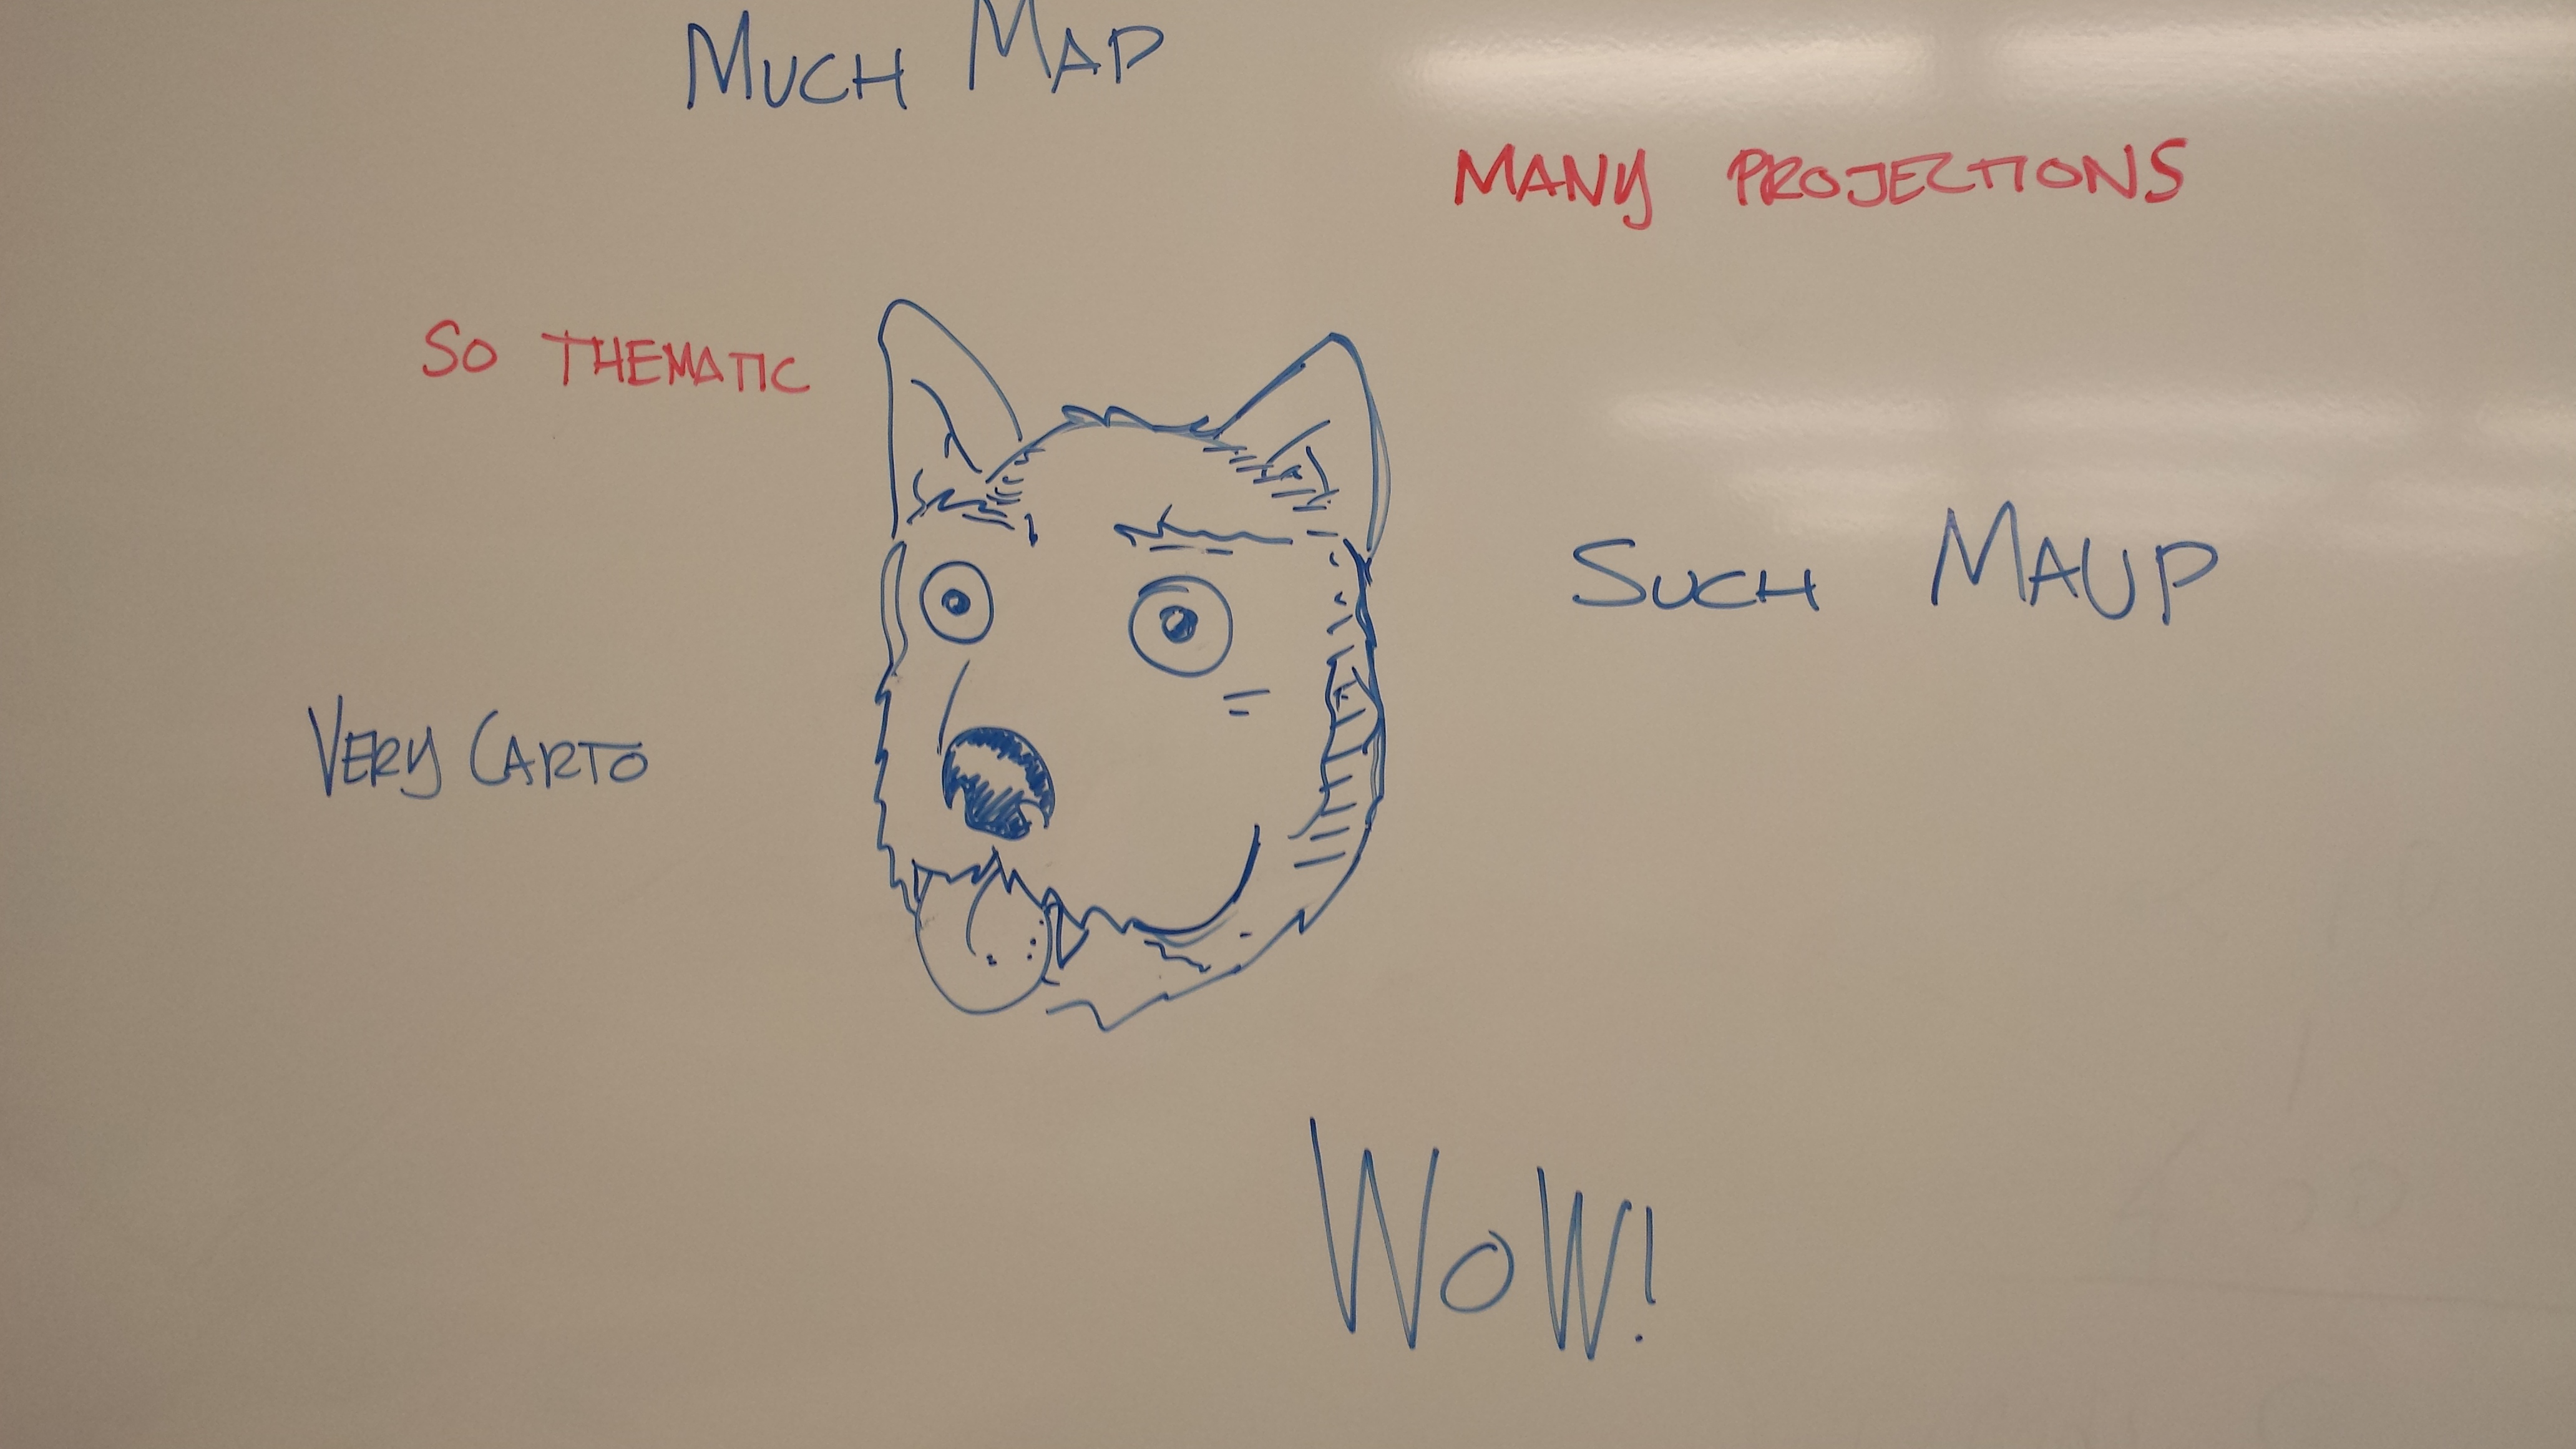 MUCH MAP
MANY PROJECTIONS
SO THEMATIC
SUCH MAUP
VERY CARTO
WOW!